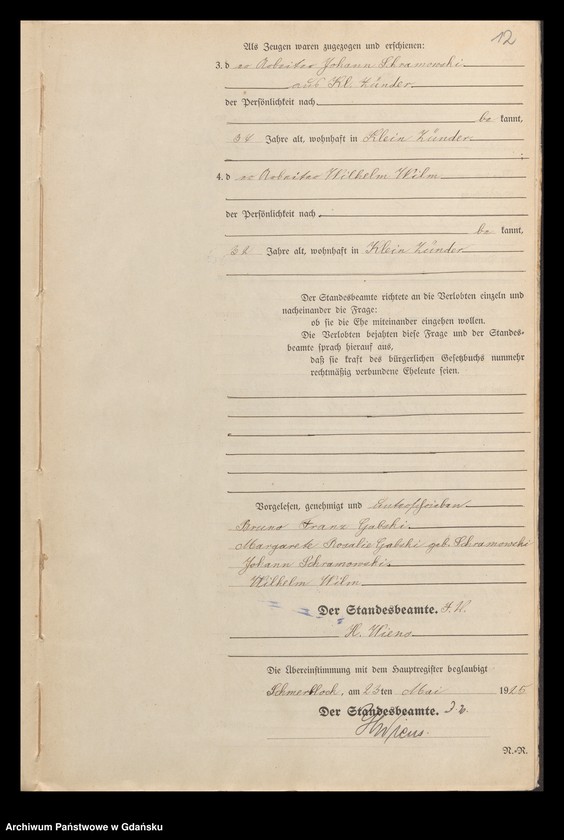 12
Als Zeugen waren zugezogen und erschienen:
3. d er Arbeiter Johann Schramowski
aus Kl. Zünder
der Persönlichkeit nach
be kannt,
34 Jahre alt, wohnhaft in Klein Zünder
4. d er Arbeiter Wilhelm Wilm
der Persönlichkeit nach
be kannt,
Jahre alt, wohnhaft in Klein Zünder
Der Standesbeamte richtete an die Verlobten einzeln und
nacheinander die Frage:
ob sie die Ehe miteinander eingehen wollen.
Die Verlobten bejahten diese Frage und der Standes-
beamte sprach hierauf aus,
daß sie kraft des bürgerlichen Gesetzbuchs nunmehr
rechtmäßig verbundene Eheleute seien.
Vorgelesen, genehmigt und unterschrieben
Bruno Franz Gabski
Margarete Rosalie Gabski geb. Schramowski
Johann Schramowski
Wilhelm Wilm
Der Standesbeamte. I. V.
H. Wiens
Die Übereinstimmung mit dem Hauptregister beglaubigt
Schmerblock, am 23ten Mai 1925
Der Standesbeamte. I. V.
HWiens.
N.-R.
Archiwum Państwowe w Gdańsku